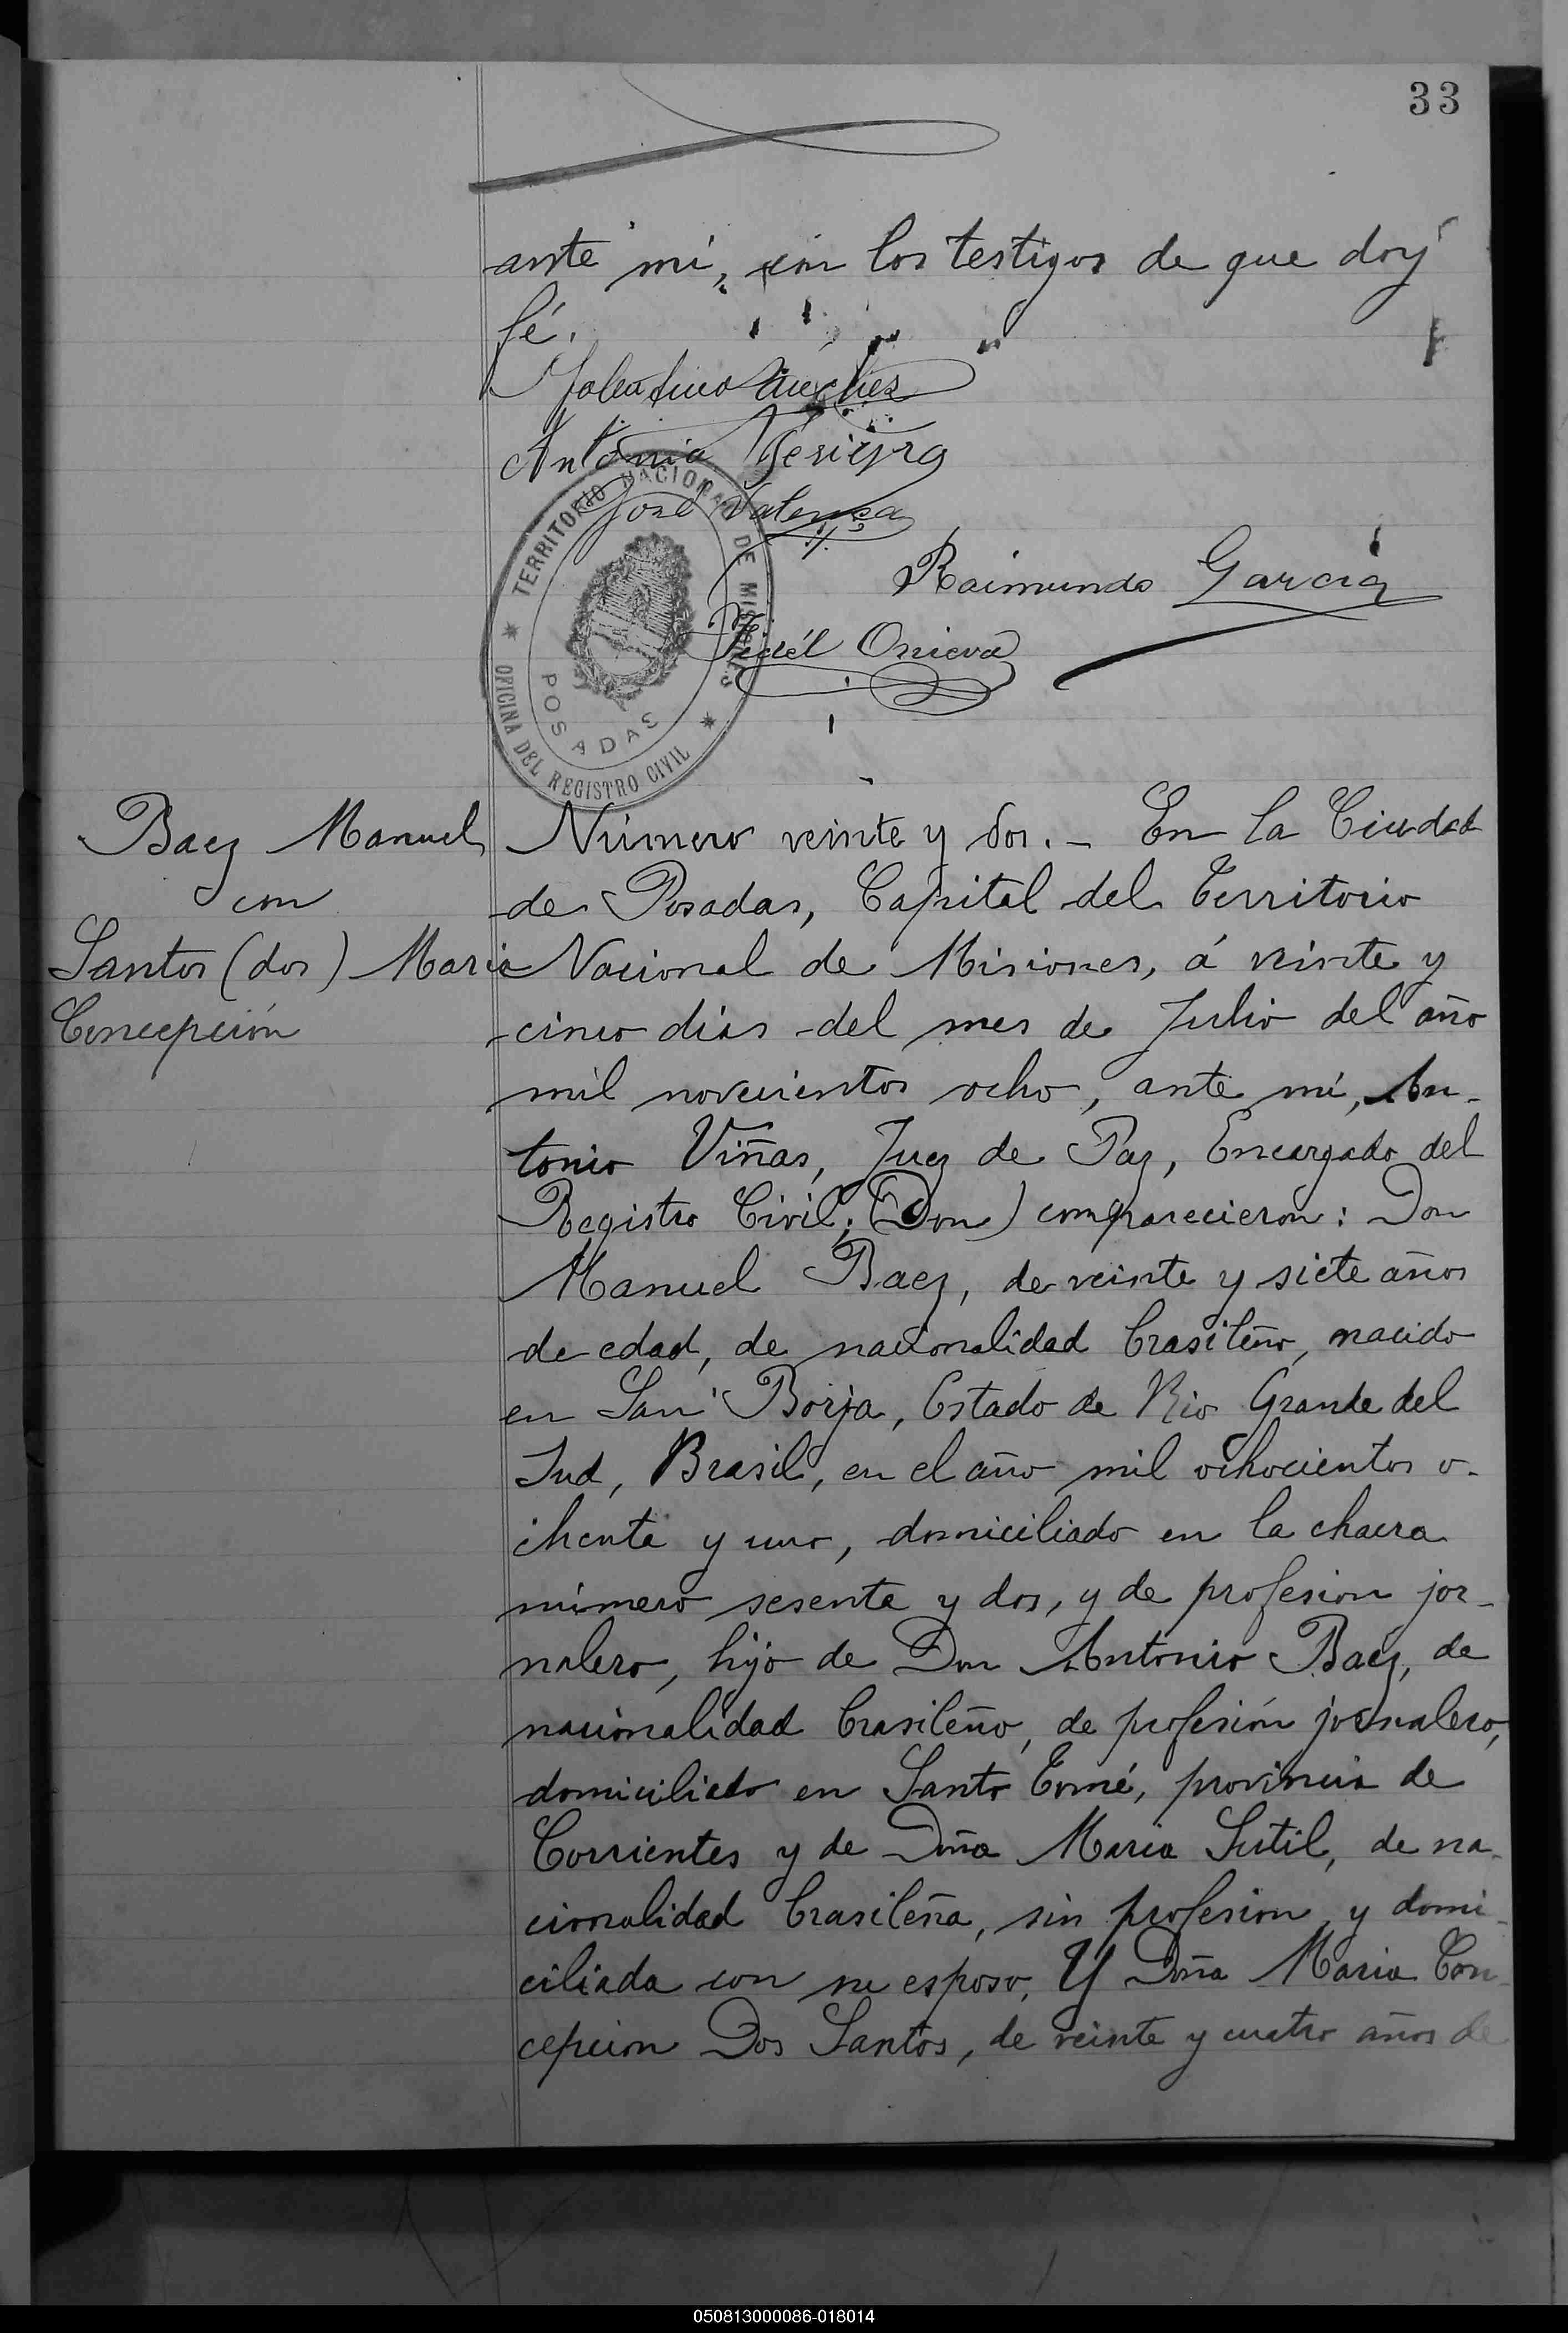 33
ante mí, con los testigos de que doy
fé.
Antonio
José
Raimundo Garcia
Fidél Onieva
TERRITORIO NACIONAL DE MISIONES
OFICINA DEL REGISTRO CIVIL
POSADAS
Baez Manuel
con
Santos (dos) Maria
Concepción
Número veinte y dos. - En la Ciudad
de Posadas, Capital del Territorio
Nacional de Misiones, á veinte y
cinco dias del mes de Julio del año
mil novecientos ocho, ante mí, An-
tonio Viñas, Juez de Paz, Encargado del
Registro Civil; (Don) comparecieron: Don
Manuel Baez, de veinte y siete años
de edad, de nacionalidad brasileño, nacido
en San Borja, Estado de Rio Grande del
Sud, Brasil, en el año mil ochocientos o-
chenta y uno, domiciliado en la chacra
número sesenta y dos, y de profesion jor-
nalero, hijo de Don Antonio Baéz, de
nacionalidad brasileño, de profesión jornalero,
domiciliado en Santo Tomé, provincia de
Corrientes y de Doña Maria Sutil, de na-
cionalidad brasileña, sin profesion y domi-
ciliada con su esposo. Y Doña Maria Con-
cepcion Dos Santos, de veinte y cuatro años de
050813000086-018014